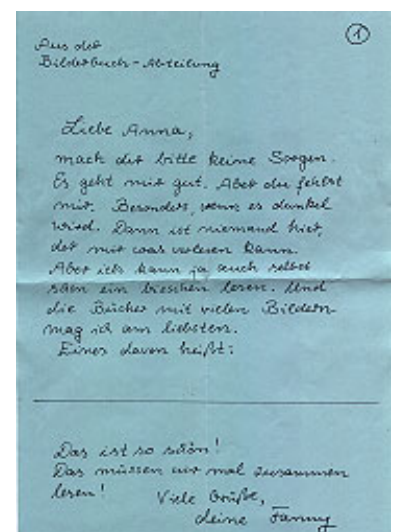 ①
Aus der
Bilderbuch-Abteilung
Liebe Anna,
mach dir bitte keine Sorgen.
Es geht mir gut. Aber du fehlst
mir. Besonders, wenn es dunkel
wird. Dann ist niemand hier,
der mir was vorlesen kann.
Aber ich kann ja auch selbst
schon ein bisschen lesen. Und
die Bücher mit vielen Bildern
mag ich am liebsten.
Eines davon heißt:
Das ist so schön!
Das müssen wir mal zusammen
lesen!
Viele Grüße,
deine Fanny